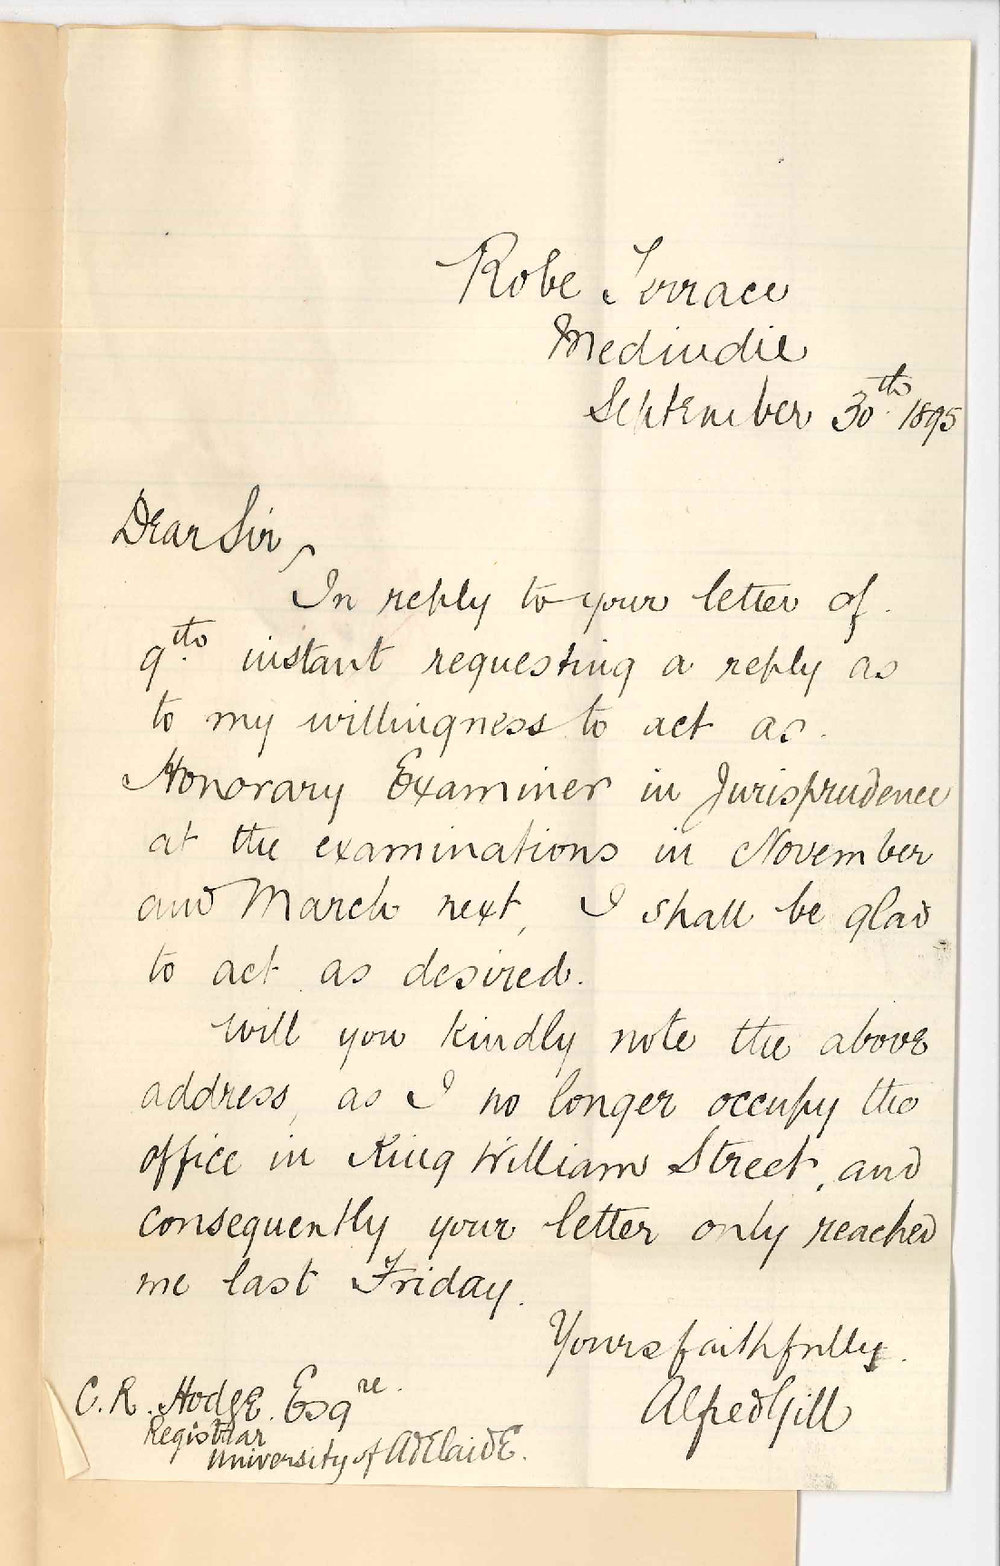 Robe Terrace
Medindie
September 30th. 1895
Dear Sir,
In reply to your letter of
9th. instant requesting a reply as
to my willingness to act as
Honorary Examiner in Jurisprudence
at the examinations in November
and March next, I shall be glad
to act as desired.
Will you kindly note the above
address, as I no longer occupy the
office in King William Street, and
consequently your letter only reached
me last Friday.
Yours faithfully.
Alfred Gill
C. R. Hodge. Esqre.
Registrar
University of Adelaide.